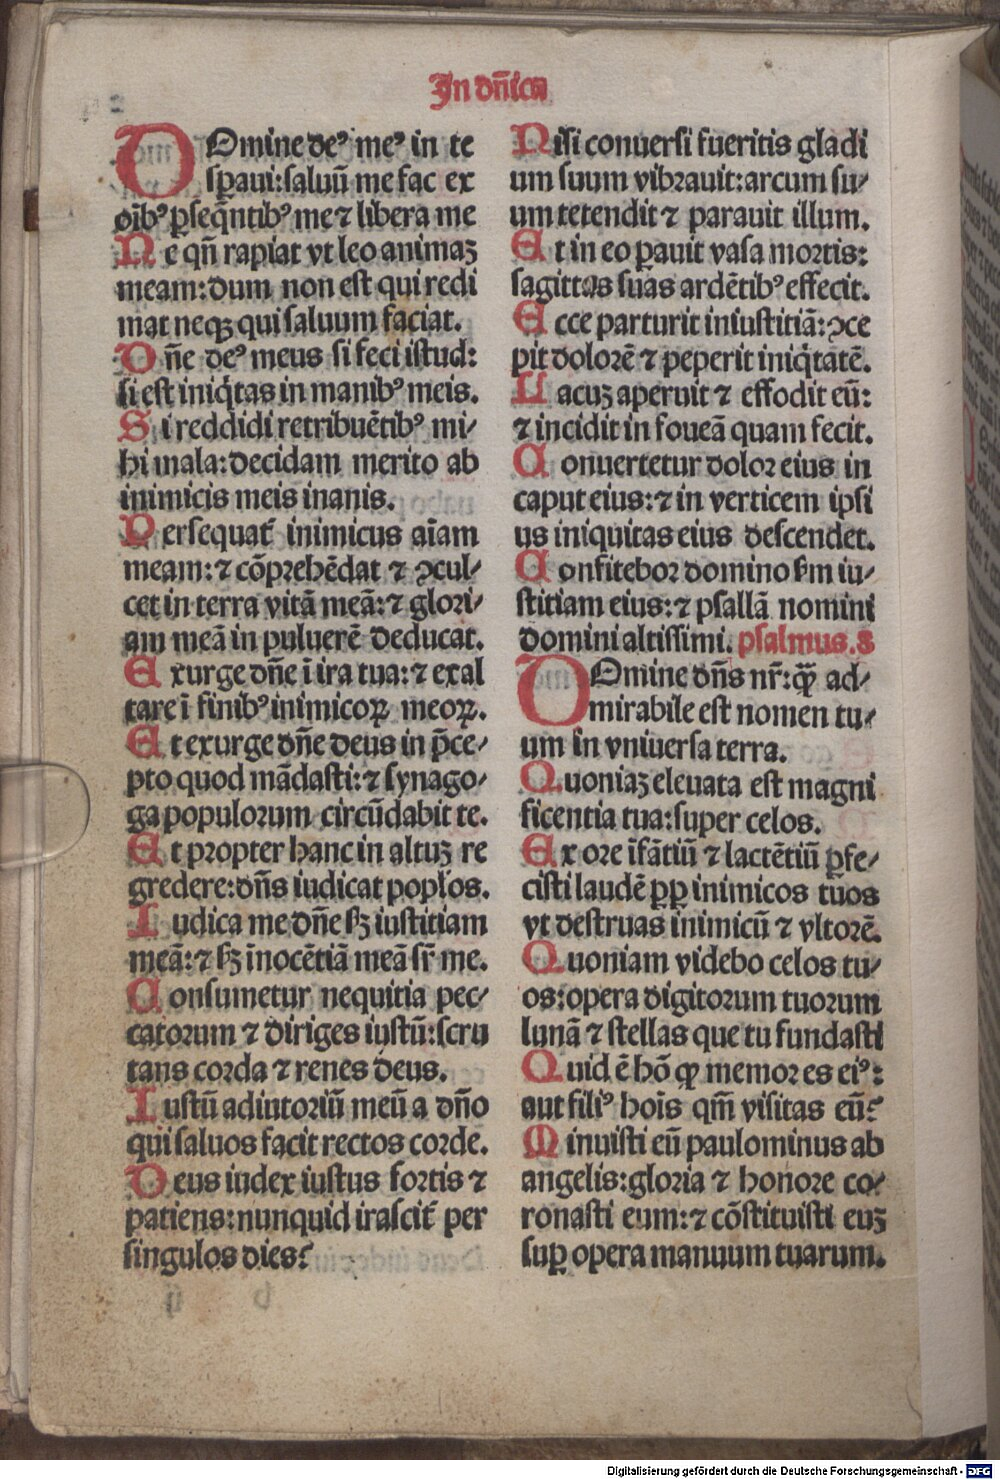 In dn̄ica
DOmine deꝰ meꝰ in te
sꝑaui:saluū me fac ex
oīb̄ꝰ ꝑseq̄ntibꝰ me ⁊ libera me
Ne qn̄ rapiat vt leo animaꝫ
meam:dum non est qui redi
mat neqꝫ qui saluum faciat.
Dn̄e deꝰ meus si feci istud:
si est iniq̇tas in manibꝰ meis.
Si reddidi retribuētibꝰ mi/
hi mala:decidam merito ab
inimicis meis inanis.
Persequat᷑ inimicus aīam
meam:⁊ cōprehēdat ⁊ ꝯcul/
cet in terra vitā meā:⁊ glori/
am meā in puluerē deducat.
Exurge dn̄e ī ira tua:⁊ exal
tare ī finibꝰ inimicoꝝ meoꝝ.
Et exurge dn̄e deus in p̄ce/
pto quod mādasti:⁊ synago/
ga populorum circūdabit te.
Et propter hanc in altuꝫ re
gredere:dn̄s iudicat popl̓os.
Iudica me dn̄e ẜꝫ iustitiam
meā:⁊ ẜꝫ īnocētiā meā sr̄ me.
Consumetur nequitia pec/
catorum ⁊ diriges iustū:scru
tans corda ⁊ renes deus.
Iustū adiutoriū meū a dn̄o
qui saluos facit rectos corde.
Deus iudex iustus fortis ⁊
patiens:nunquid irascit᷑ per
singulos dies?
Nisi conuersi fueritis gladi
um suum vibrauit:arcum su/
um tetendit ⁊ parauit illum.
Et in eo ꝑauit vasa mortis:
sagittas suas ardētibꝰ effecit.
Ecce parturit iniustitiā:ꝯce
pit dolorē ⁊ peperit iniq̇tatē.
Lacuꝫ aperuit ⁊ effodit eū:
⁊ incidit in foueā quam fecit.
Conuertetur dolor eius in
caput eius:⁊ in verticem ipsi
us iniquitas eius descendet.
Confitebor domino ẜm iu/
stitiam eius:⁊ psallā nomini
domini altissimi. psalmus.8
DOmine dn̄s nr̄:qꝫ ad/
mirabile est nomen tu/
um in vniuersa terra.
Quoniaꝫ eleuata est magni
ficentia tua:super celos.
Ex ore īfātiū ⁊ lactētiū ꝑfe/
cisti laudē ꝓꝑ inimicos tuos
vt destruas inimicū ⁊ vltorē.
Quoniam videbo celos tu/
os:opera digitorum tuorum
lunā ⁊ stellas que tu fundasti
Quid ē hō ꝙ memor es eiꝰ:
aut filiꝰ hoīs qm̄ visitas eū?
Minuisti eū paulominus ab
angelis:gloria ⁊ honore co/
ronasti eum:⁊ cōstituisti euꝫ
suꝑ opera manuum tuarum.
Digitalisierung gefördert durch die Deutsche Forschungsgemeinschaft - DFG